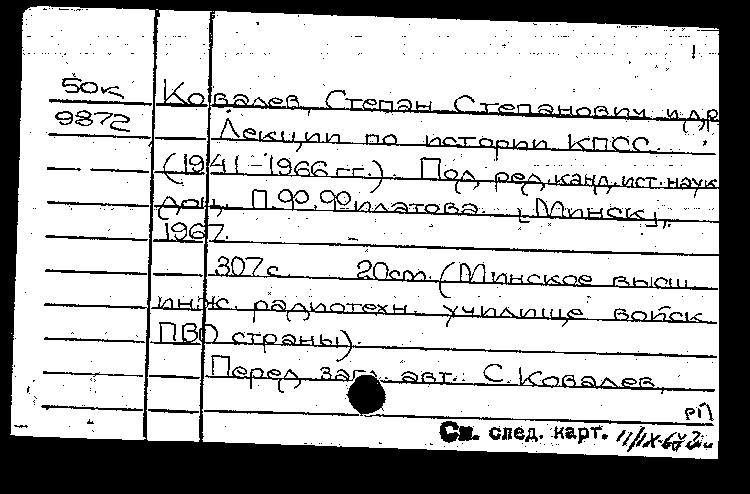 1
50к Ковалев, Степан Степанович и др
9872 Лекции по истории КПСС.
(1941-1966 гг.). Под ред. канд. ист. наук
доц. П.Ф. Филатова. [Минск],
1967.
307 с. 20 cm. (Минское высш.
инж. радиотехн. училище войск
ПВО страны).
Перед загл. авт.: С. Ковалев,
РП
См. след. карт. 11/IX-67